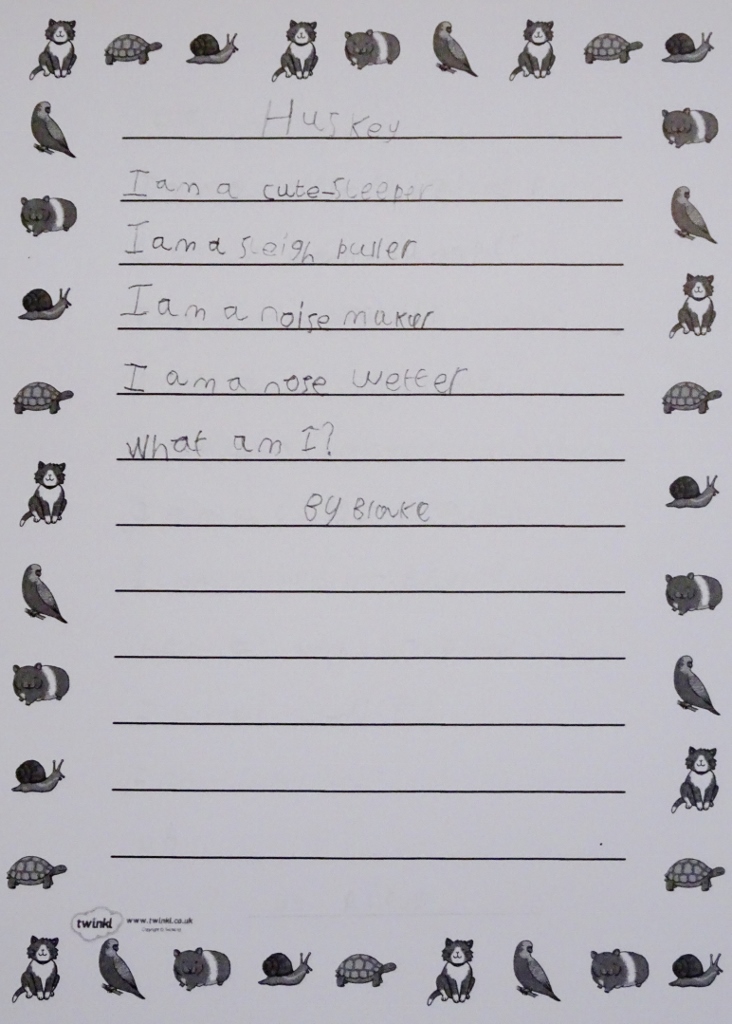 Huskey
I am a cute-sleeper
I am a sleigh puller
I am a noise maker
I am a nose wetter
What am I?
By Blake
twinkl www.twinkl.co.uk